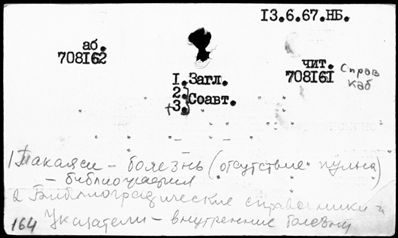 13.6.67.НБ.
аб.
708162
чит.
708161
Справ
каб
1. Загл.
2.
3. Соавт.
1) Такаяси - болезнь (отсутствие пульса)
- библиография
2 Библиографические справочники и
Указатели - внутренние болезни
164